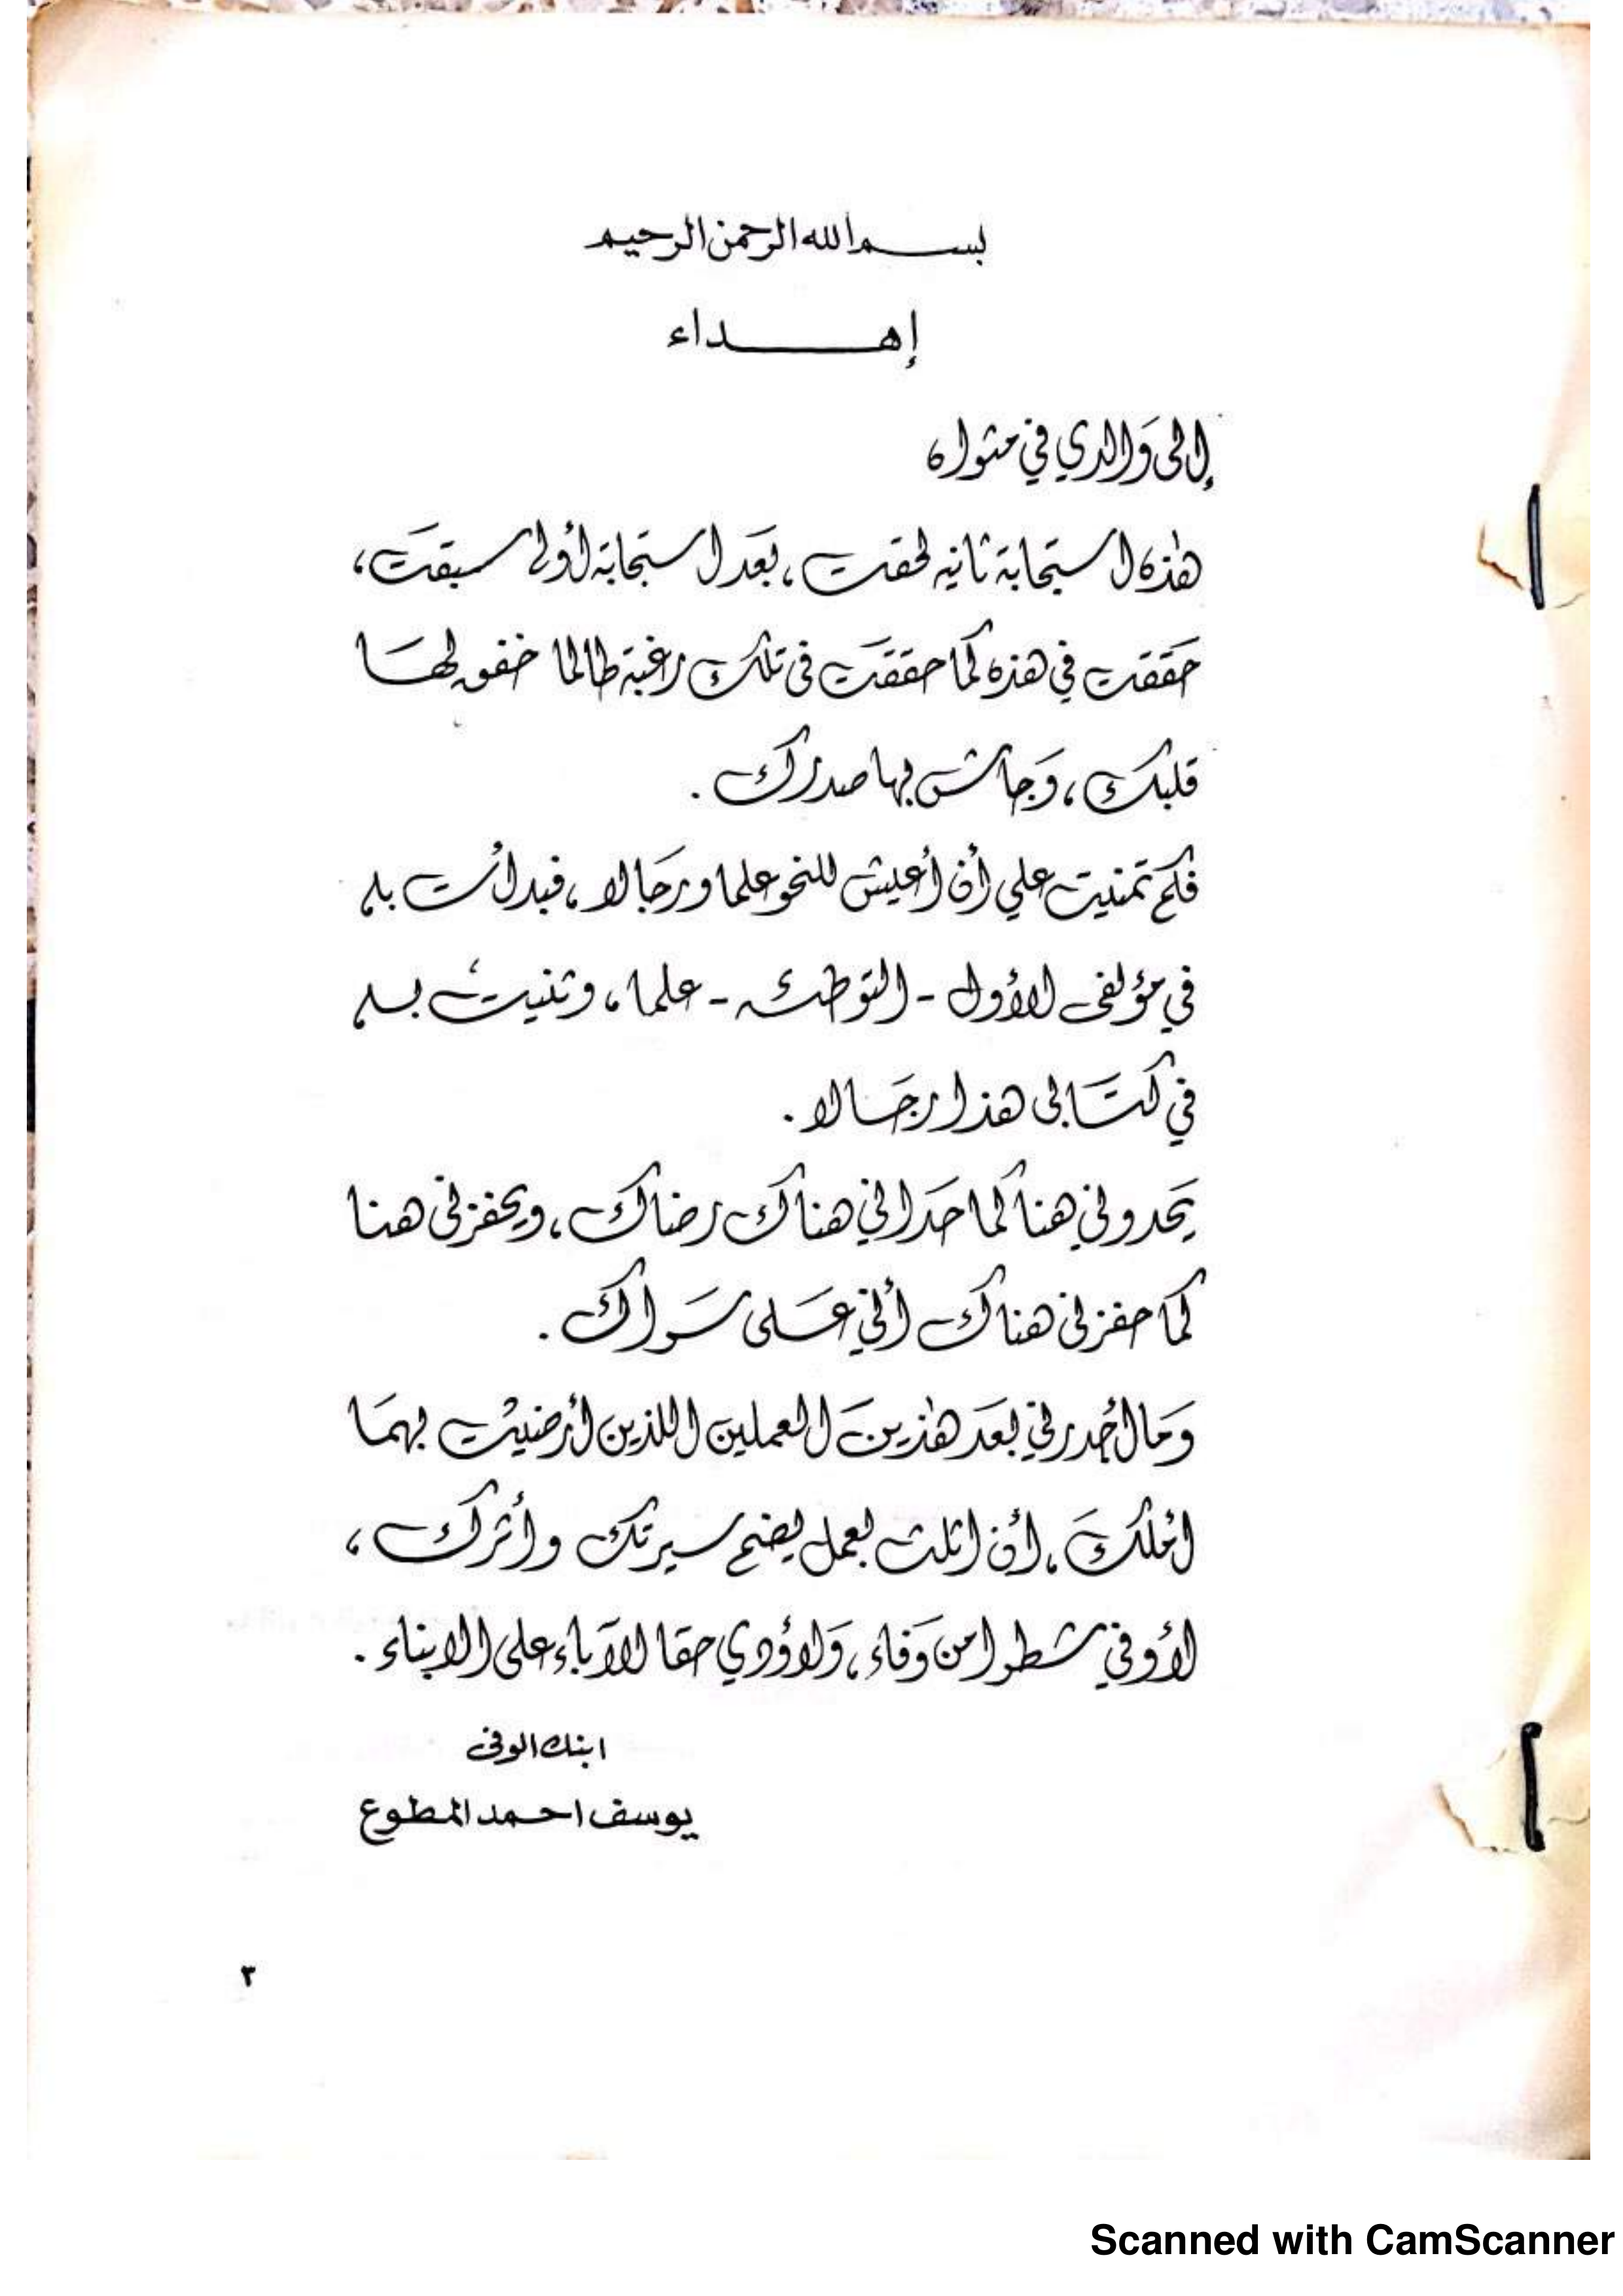 بسم الله الرحمن الرحيم
إهداء
إلى وَالدي في مثواه
هٰذه استجابة ثانيه لحقت، بعَد استجابة أولى سبقتَ،
حَققت في هذه كما حققتَ في تلك رغبة طالما خفق لهَا
قلبك، وَجاش بها صدرك.
فكم تمنيت علي أن أعيش للنحو علما ورجَالا، فبدأت به
في مؤلفى الأول - التوطئه - علما، وثنيتُ به
في كتَابى هذا رجَالا.
يَحدوني هنا كما حَداني هناك رضاك، ويحفزنى هنا
كما حفزنى هناك أني عَلى سَواك.
وَمَا أجدرني بعَد هٰذينَ العملين اللذين أرضيتُ بهمَا
أملكَ، أن أثلث بعمل يضم سيرتك وأثرك،
لأوفي شطرا من وَفاء، وَلأؤدي حقا للآباء على الابناء.
ابنك الوفى
يوسف احمد المطوع
٣
Scanned with CamScanner